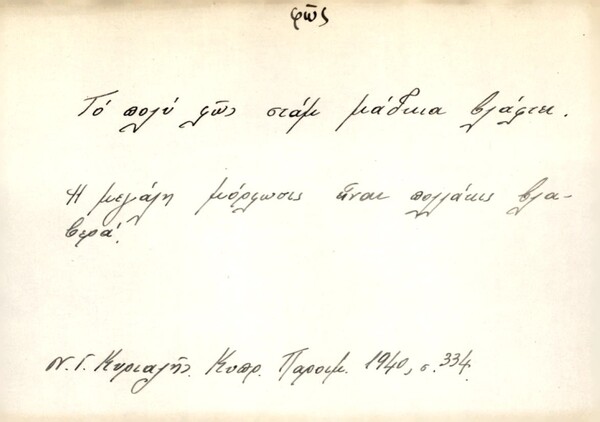 φῶς
Τό πολύ φῶς στάμ μάδκια βλάφτει.
Η μεγάλη μόρφωσις εἶναι πολλάκις βλα-
βερά.
Ν. Γ. Κυριαζῆς. Κυπρ. Παροιμ. 1940, σ. 334.